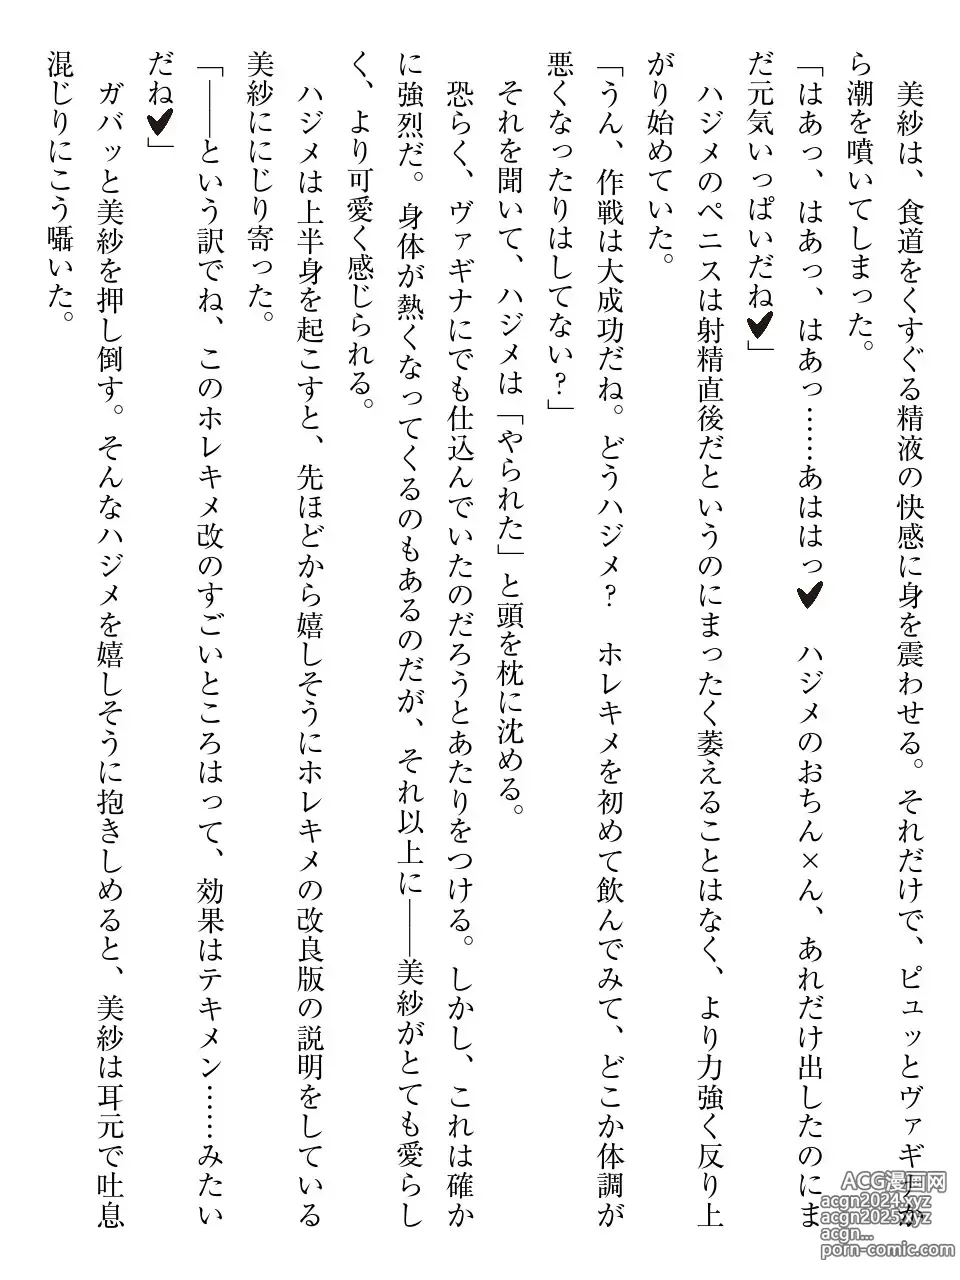 美紗は、食道をくすぐる精液の快感に身を震わせる。それだけで、ピュッとヴァギナか
ら潮を噴いてしまった。
「はあっ、はあっ、はあっ……あははっ♥　ハジメのおちん×ん、あれだけ出したのにま
だ元気いっぱいだね♥」
ハジメのペニスは射精直後だというのにまったく萎えることはなく、より力強く反り上
がり始めていた。
「うん、作戦は大成功だね。どうハジメ？　ホレキメを初めて飲んでみて、どこか体調が
悪くなったりはしてない？」
それを聞いて、ハジメは「やられた」と頭を枕に沈める。
恐らく、ヴァギナにでも仕込んでいたのだろうとあたりをつける。しかし、これは確か
に強烈だ。身体が熱くなってくるのもあるのだが、それ以上に――美紗がとても愛らし
く、より可愛く感じられる。
ハジメは上半身を起こすと、先ほどから嬉しそうにホレキメの改良版の説明をしている
美紗ににじり寄った。
「――という訳でね、このホレキメ改のすごいところはって、効果はテキメン……みたい
だね♥」
ガバッと美紗を押し倒す。そんなハジメを嬉しそうに抱きしめると、美紗は耳元で吐息
混じりにこう囁いた。
ACG漫画网
acgn2024.xyz
acgn2025.xyz
acgn...
porn-comic.com